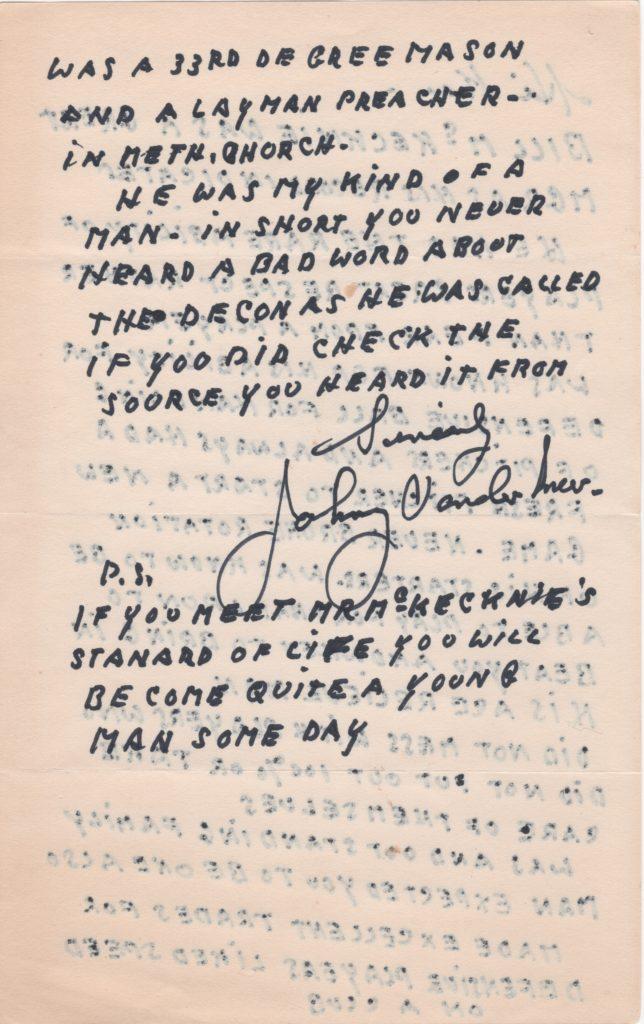 WAS A 33RD DEGREE MASON
AND A LAYMAN PREACHER-
IN METH. CHORCH-
HE WAS MY KIND OF A
MAN- IN SHORT YOU NEVER
HEARD A BAD WORD ABOUT
THE DECON AS HE WAS CALLED
IF YOU DID CHECK THE
SOORCE YOU HEARD IT FROM
Sincerely
Johnny Vander Meer-
P.S.
IF YOU MEET MR. McKECKNIE'S
STANARD OF LIFE YOU WILL
BECOME QUITE A YOUNG
MAN SOME DAY